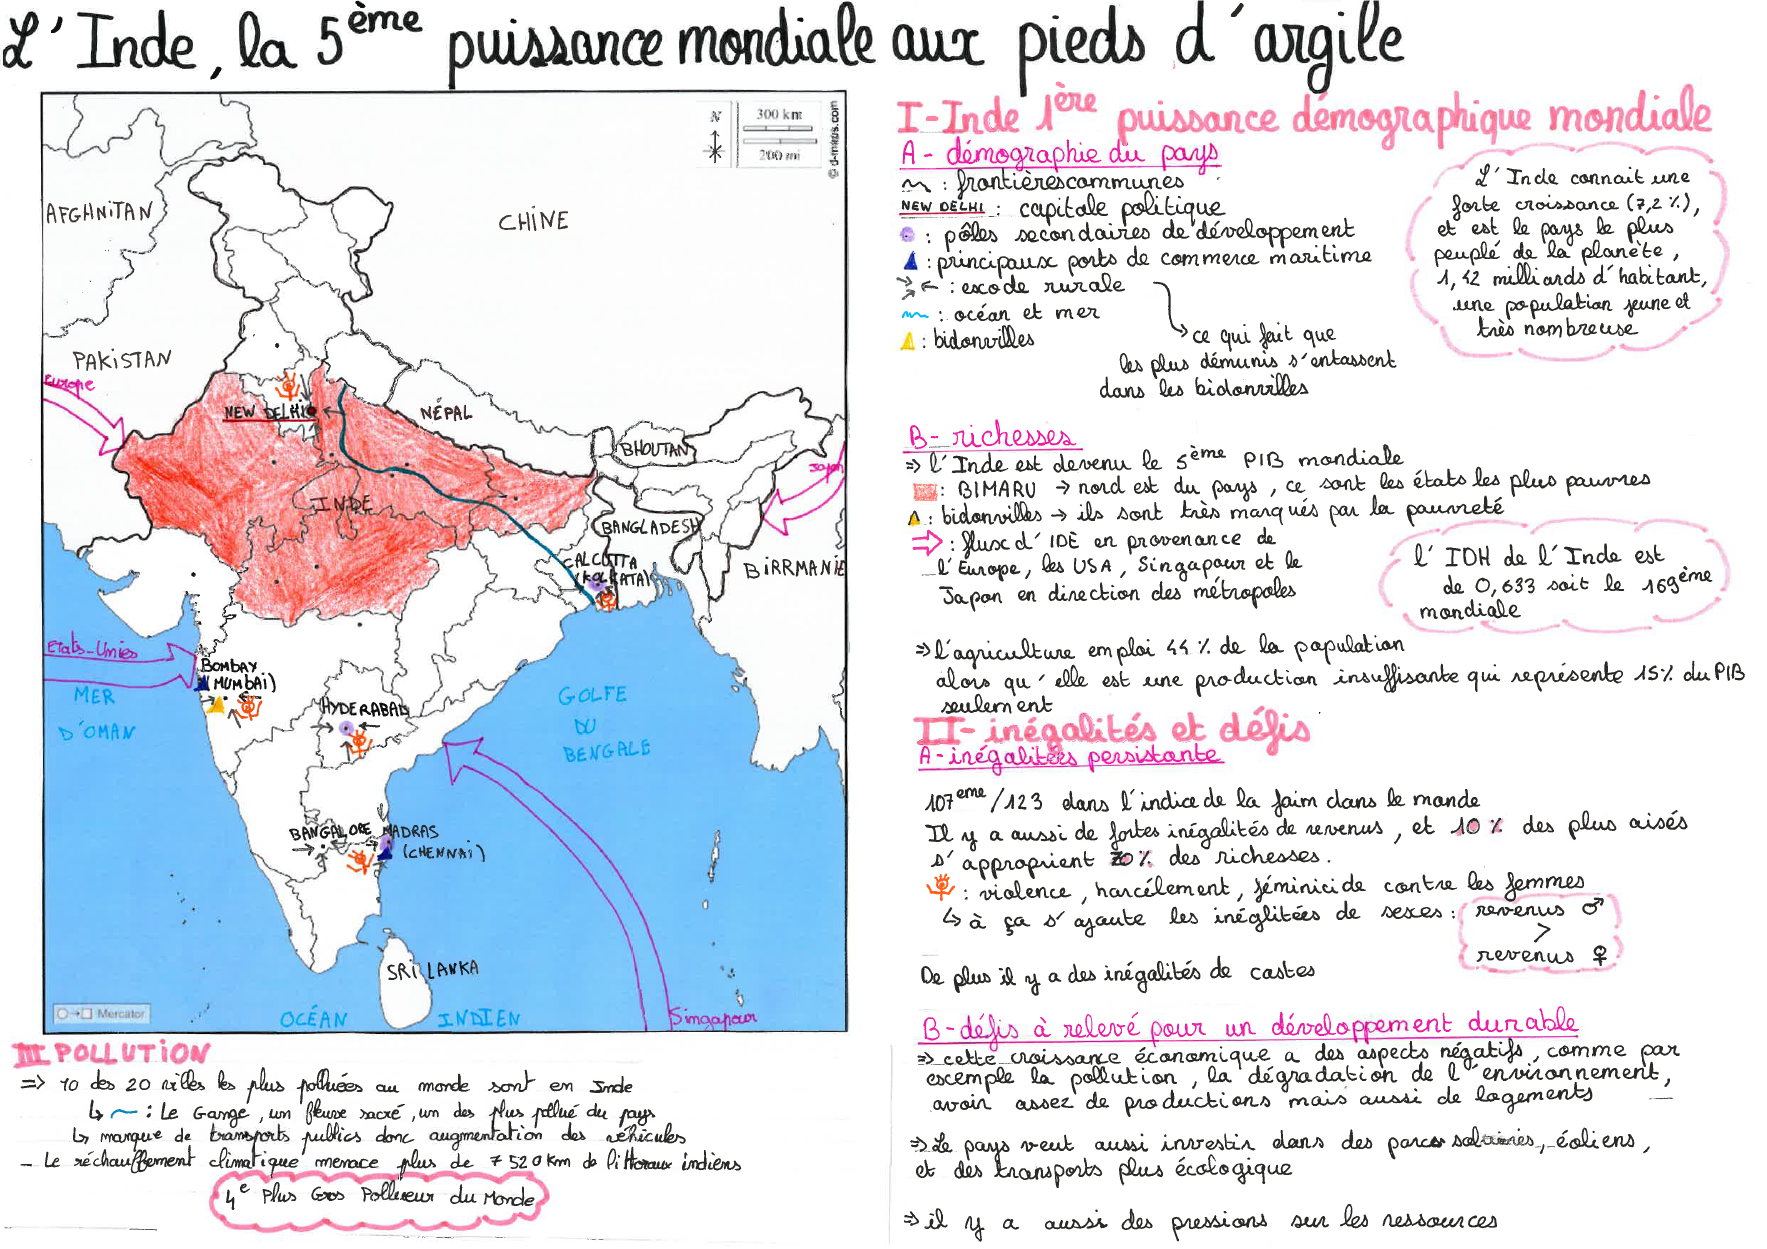 L'Inde, la 5ème puissance mondiale aux pieds d'argile
N
300 km
200 mi
© d-maps.com
AFGHNiTAN
CHiNE
PAKiSTAN
Europe
NEW DELHi
NÉPAL
BHOUTAN
Japon
INDE
BANGLADESH
BiRRMANiE
CALCUTTA
(KOLKATA)
Etats-Unies
BOMBAY
(MUMBAi)
MER
D'OMAN
HYDERABAD
GOLFE
DU
BENGALE
BANGALORE
MADRAS
(CHENNAi)
SRi LANKA
OCÉAN INDIEN
Singapour
Mercator
I-Inde 1ère puissance démographique mondiale
A - démographie du pays
: frontières communes
NEW DELHI : capitale politique
: pôles secondaires de développement
: principaux ports de commerce maritime
: exode rurale
: océan et mer
: bidonvilles
ce qui fait que
les plus démunis s'entassent
dans les bidonvilles
L'Inde connait une
forte croissance (7,2 %),
et est le pays le plus
peuplé de la planète,
1,42 milliards d'habitant,
une population jeune et
très nombreuse
B- richesses
⇒ l'Inde est devenu le 5ème PIB mondiale
: BIMARU → nord est du pays, ce sont les états les plus pauvres
: bidonvilles → ils sont très marqués par la pauvreté
⇒ : flux d'IDE en provenance de
l'Europe, les USA, Singapour et le
Japon en direction des métropoles
l'IDH de l'Inde est
de 0,633 soit le 169ème
mondiale
⇒ l'agriculture emploi 44 % de la population
alors qu'elle est une production insuffisante qui représente 15% du PIB
seulement
II- inégalités et défis
A- inégalitées persistante
107eme/123 dans l'indice de la faim dans le monde
Il y a aussi de fortes inégalités de revenus, et 10 % des plus aisés
s'approprient 70% des richesses.
: violence, harcélement, féminicide contre les femmes
↳ à ça s'ajoute les inéglitées de sexes :
revenus ♂
>
revenus ♀
De plus il y a des inégalités de castes
B- défis à relevé pour un développement durable
⇒ cette croissance économique a des aspects négatifs, comme par
exemple la pollution, la dégradation de l'environnement,
avoir assez de productions mais aussi de logements
⇒ Le pays veut aussi investir dans des parcs solaires, éoliens,
et des transports plus écologique
⇒ il y a aussi des pressions sur les ressources
III POLLUTiON
⇒ 10 des 20 villes les plus polluées au monde sont en Inde
↳ : Le Gange, un fleuve sacré, un des plus pollué du pays
↳ manque de transports publics donc augmentation des véhicules
- Le réchauffement climatique menace plus de 7 520 km de littoraux indiens
4e Plus Gros Pollueur du Monde